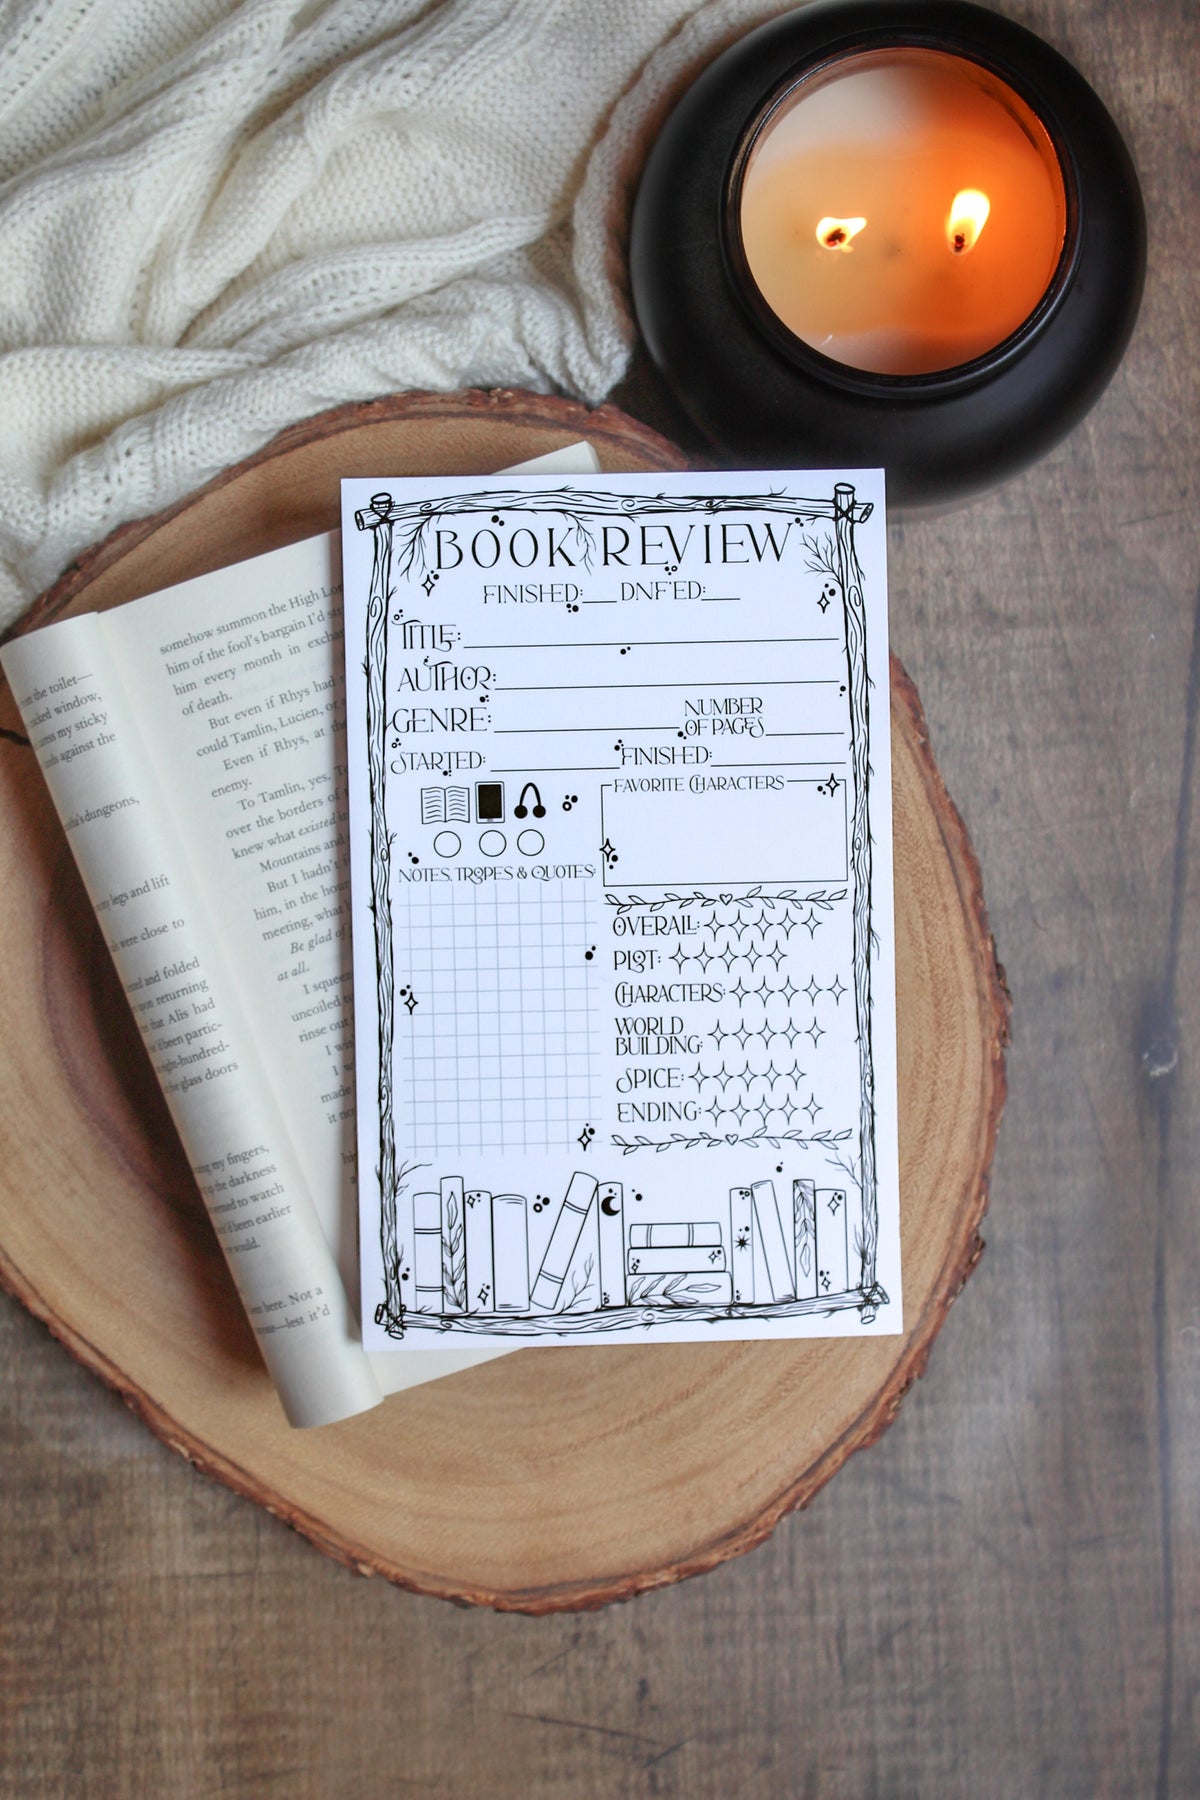 BOOK REVIEW
FINISHED:___ DNF'ED:___
TITLE:
AUTHOR:
GENRE:
NUMBER
OF PAGES
STARTED:
FINISHED:
FAVORITE CHARACTERS
NOTES, TROPES & QUOTES:
OVERALL:
PLOT:
CHARACTERS:
WORLD
BUILDING:
SPICE:
ENDING:
somehow summon the High
him of the fool's bargain I'd
him every month in
of death.
But even if Rhys had
could Tamlin, Lucien, or
Even if Rhys, at
enemy.
To Tamlin, yes,
over the borders of
knew what existed
Mountains and
But I hadn't
him, in the
meeting, what
Be glad of
at all.
uncoiled
rinse out
made
it
from the toilet—
window,
my sticky
against the
dungeons,
my legs and lift
were close to
and folded
upon returning
that Alis had
been partic-
eight-hundred-
glass doors
my fingers,
the darkness
to watch
been earlier
would.
here. Not a
—lest it'd